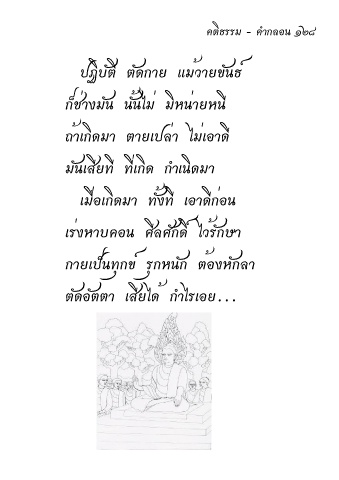 คติธรรม - คำกลอน ๑๒๘
ปฏิบัติ ตัดกาย แม้วายขันธ์
ก็ช่างมัน นั้นไม่ มิหน่ายหนี
ถ้าเกิดมา ตายเปล่า ไม่เอาดี
มันเสียที ที่เกิด กำเนิดมา
เมื่อเกิดมา ทั้งที เอาดีก่อน
เร่งหาบคอน ศีลศักดิ์ ไว้รักษา
กายเป็นทุกข์ รุกหนัก ต้องหักลา
ตัดอัตตา เสียได้ กำไรเอย...